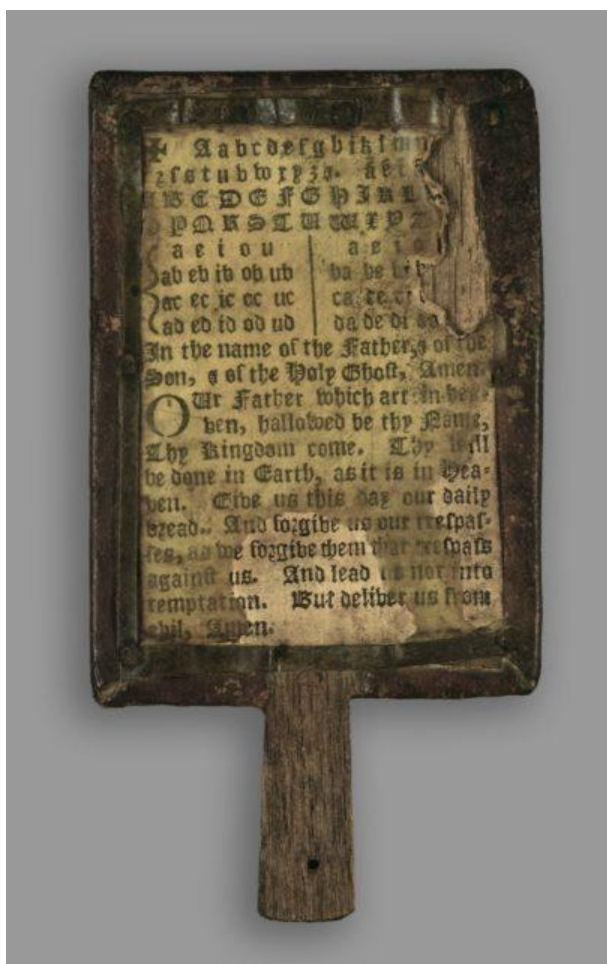 ✠ Aabcdefghiklmn
rſstubwxyz. āēī
ABCDEFGHIKL
OPQRSTUWXYZ
a e i o u | a e i o
ab eb ib ob ub | ba be bi
ac ec ic oc uc | ca ce ci
ad ed id od ud | da de di do
In the name of the Father, & of the
Son, & of the Holy Ghoſt, Amen.
OUr Father which art in hea-
ven, hallowed be thy Name,
Thy Kingdom come. Thy will
be done in Earth, as it is in Hea-
ven. Give us this day our daily
bread. And forgive us our treſpaſ-
ſes, as we forgive them that treſpaſs
againſt us. And lead us not into
temptation. But deliver us from
evil, Amen.